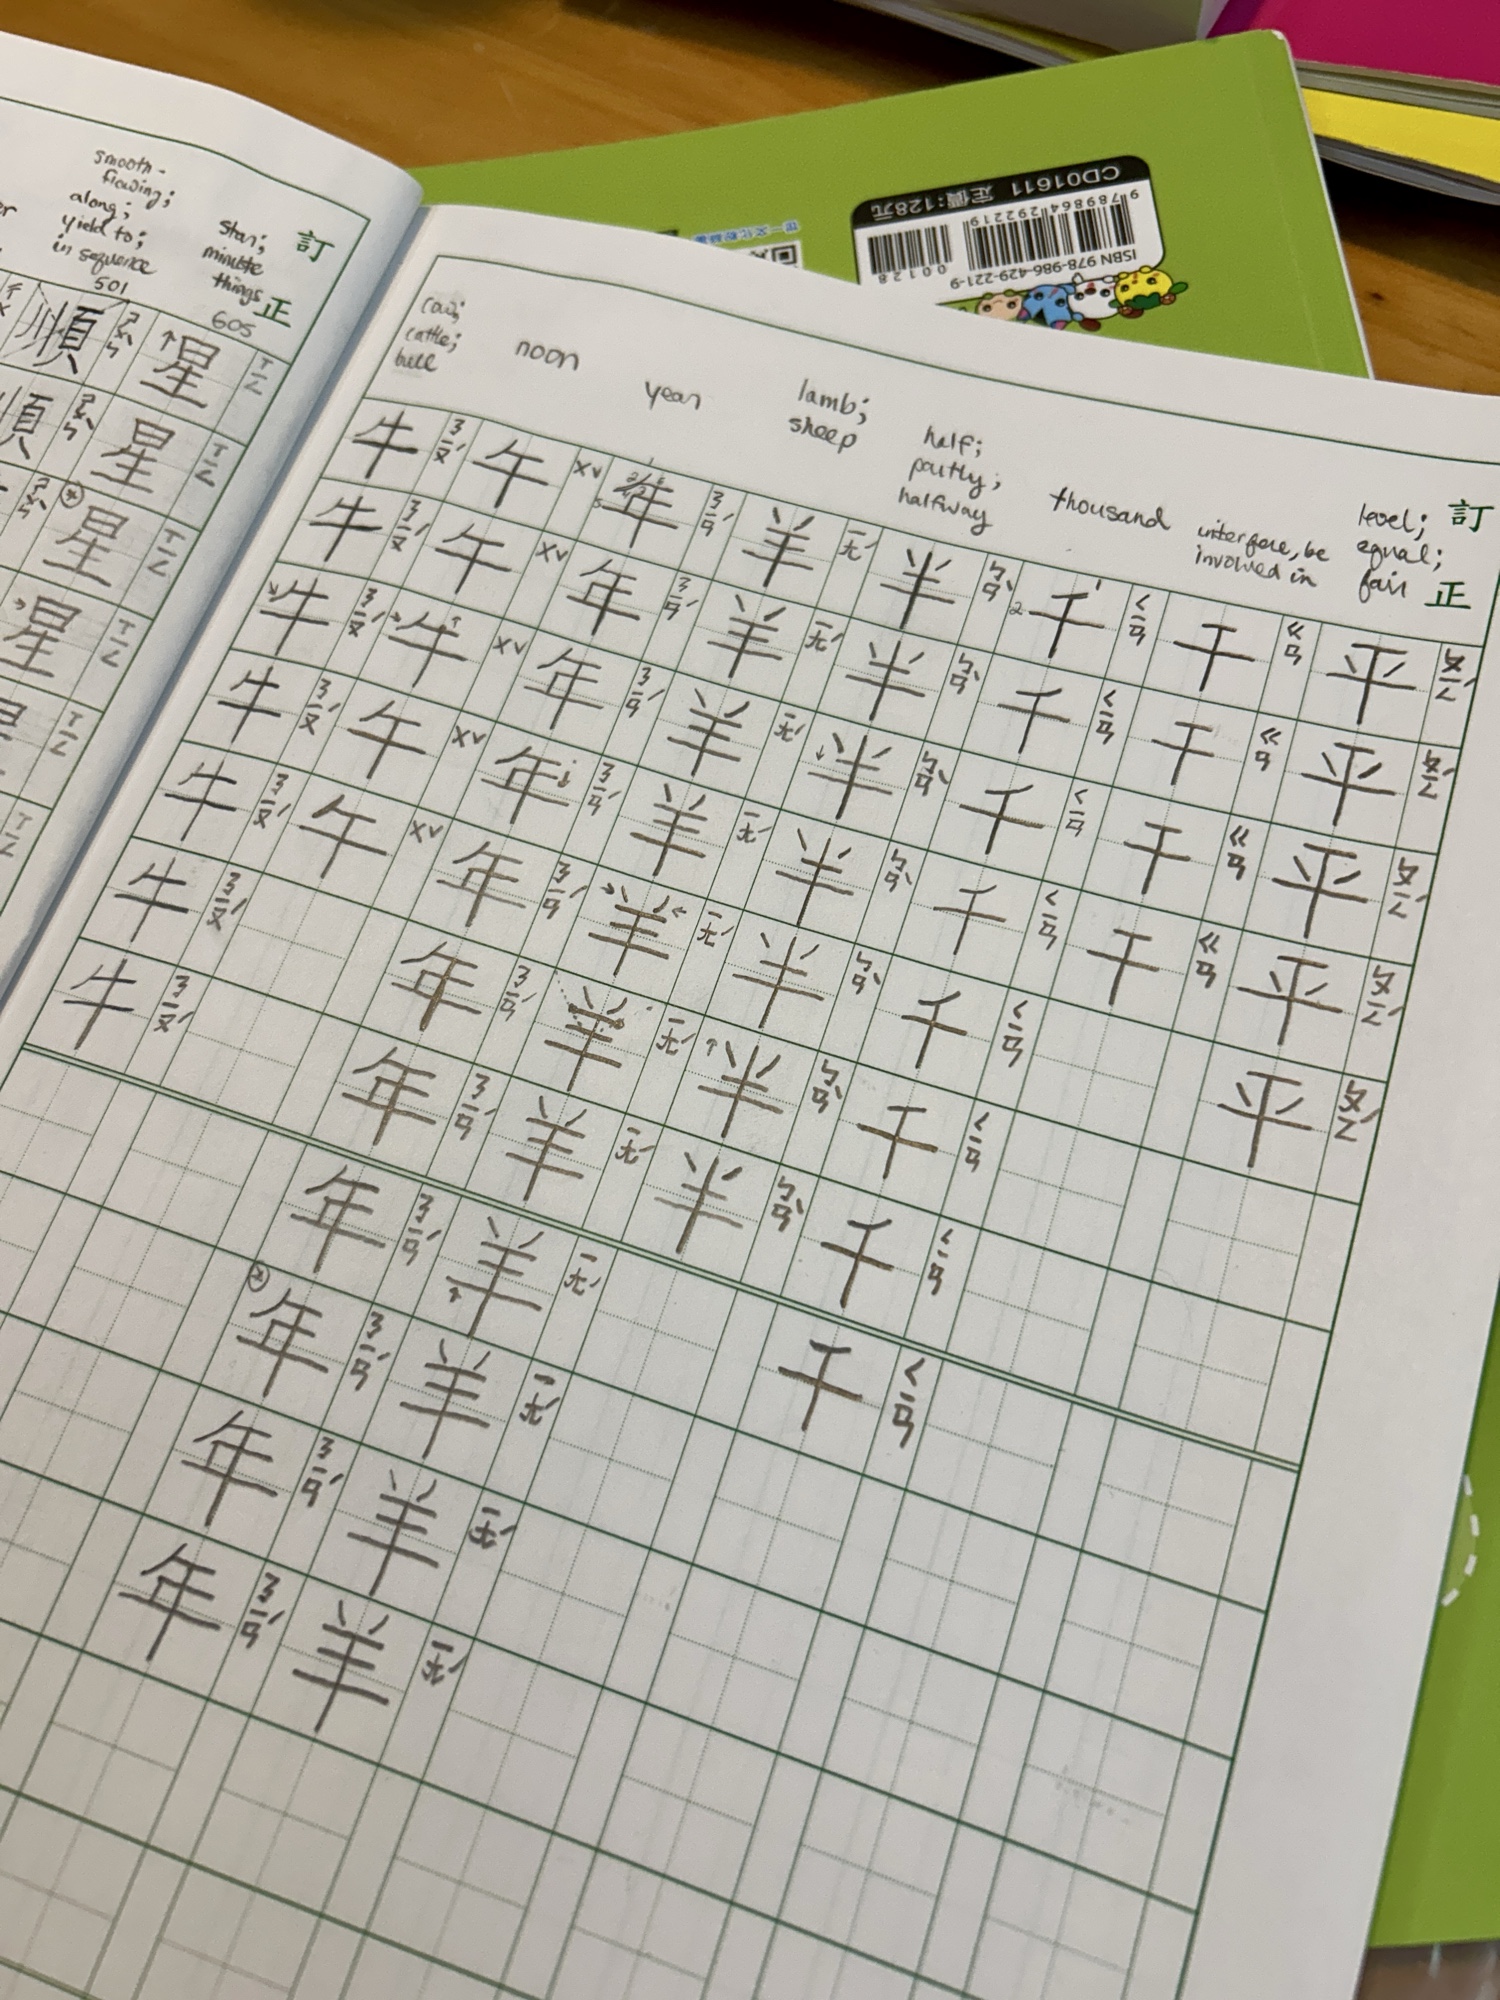 smooth-
flowing;
along;
yield to;
in sequence
501
star;
minute
things
605
訂
正
順 ㄕㄨㄣˋ
順 ㄕㄨㄣˋ
星 ㄒㄧㄥ
星 ㄒㄧㄥ
星 ㄒㄧㄥ
星 ㄒㄧㄥ
CD01611 定價:128元
9 789864 292219
00128
ISBN 978-986-429-221-9
cow;
cattle;
bull
noon
year
lamb;
sheep
half;
partly;
halfway
thousand
interfere, be
involved in
level;
equal;
fair
訂
正
牛 ㄋㄧㄡˊ
牛 ㄋㄧㄡˊ
牛 ㄋㄧㄡˊ
牛 ㄋㄧㄡˊ
牛 ㄋㄧㄡˊ
牛 ㄋㄧㄡˊ
牛 ㄋㄧㄡˊ
午 ㄨˇ
午 ㄨˇ
午 ㄨˇ
午 ㄨˇ
午 ㄨˇ
年 ㄋㄧㄢˊ
年 ㄋㄧㄢˊ
年 ㄋㄧㄢˊ
年 ㄋㄧㄢˊ
年 ㄋㄧㄢˊ
年 ㄋㄧㄢˊ
年 ㄋㄧㄢˊ
年 ㄋㄧㄢˊ
年 ㄋㄧㄢˊ
年 ㄋㄧㄢˊ
年 ㄋㄧㄢˊ
羊 ㄧㄤˊ
羊 ㄧㄤˊ
羊 ㄧㄤˊ
羊 ㄧㄤˊ
羊 ㄧㄤˊ
羊 ㄧㄤˊ
羊 ㄧㄤˊ
羊 ㄧㄤˊ
羊 ㄧㄤˊ
羊 ㄧㄤˊ
羊 ㄧㄤˊ
半 ㄅㄢˋ
半 ㄅㄢˋ
半 ㄅㄢˋ
半 ㄅㄢˋ
半 ㄅㄢˋ
半 ㄅㄢˋ
半 ㄅㄢˋ
千 ㄑㄧㄢ
千 ㄑㄧㄢ
千 ㄑㄧㄢ
千 ㄑㄧㄢ
千 ㄑㄧㄢ
千 ㄑㄧㄢ
千 ㄑㄧㄢ
千 ㄑㄧㄢ
干 ㄍㄢ
干 ㄍㄢ
干 ㄍㄢ
干 ㄍㄢ
平 ㄆㄧㄥˊ
平 ㄆㄧㄥˊ
平 ㄆㄧㄥˊ
平 ㄆㄧㄥˊ
平 ㄆㄧㄥˊ